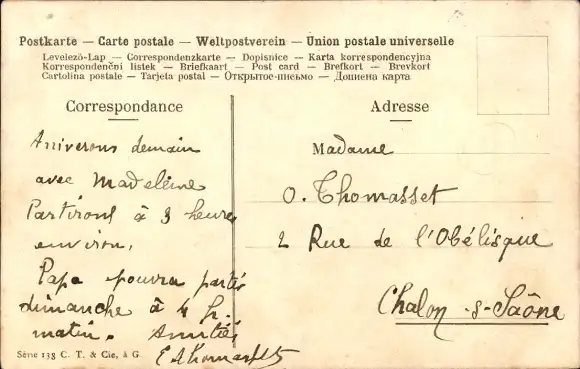 Postkarte — Carte postale — Weltpostverein — Union postale universelle
Levelező-Lap — Correspondenzkarte — Dopisnice — Karta korrespondencyjna
Korrespondenční listek — Briefkaart — Post card — Brefkort — Brevkort
Cartolina postale — Tarjeta postal — Открытое-письмо — Дописна карта
Correspondance
Arriverons demain
avec Madeleine
Partirons à 3 heures
environ.
Papa pourra partir
dimanche à 4 h.
matin. Amitiés
E Thomasset
Série 138 C. T. & Cie, à G.
Adresse
Madame
O. Thomasset
2 Rue de l'Obélisque
Chalon-s-Saône